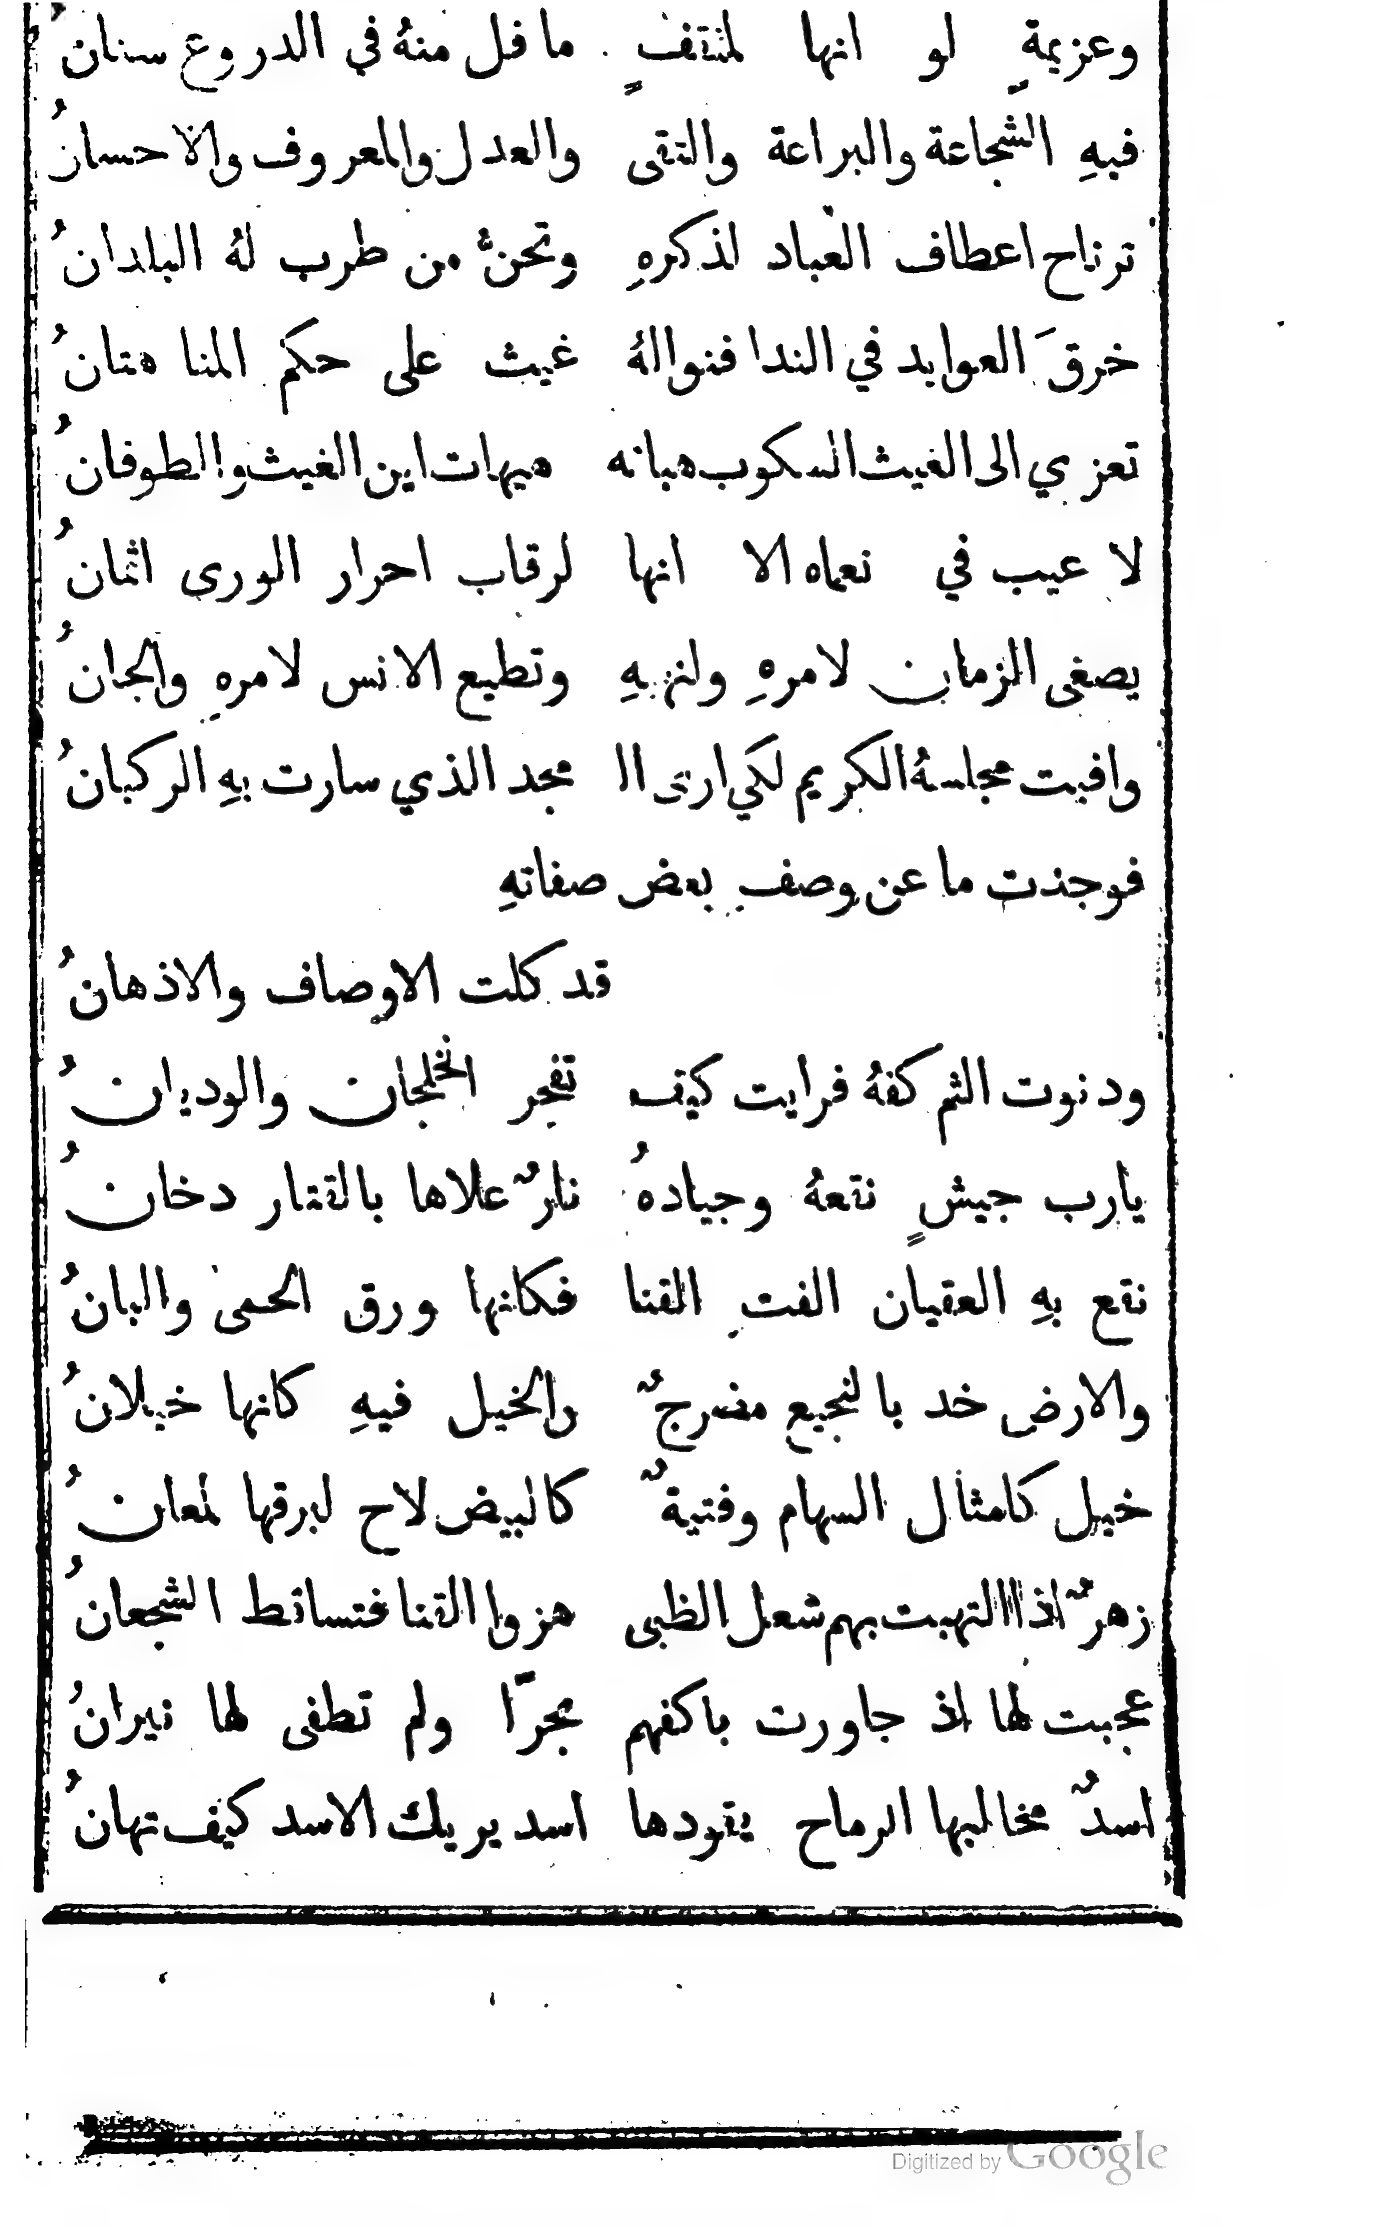 وعزيمةٍ لو انها لمثقفٍ ما فل منهُ في الدروع سنانُ
فيهِ الشجاعة والبراعة والتقى والعدل والمعروف والاحسانُ
ترتاح اعطاف العباد لذكرهِ وتحنُّ من طرب لهُ البلدانُ
خرقَ العوايد في الندا فنوالهُ غيث على حكم المنا هتانُ
تعزي الى الغيث السكوب هباته هيهات اين الغيث والطوفانُ
لا عيب في نعماه الا انها لرقاب احرار الورى اثمانُ
يصغى الزمان لامرهِ ولنهيهِ وتطيع الانس لامرهِ والجانُ
وافيت مجلسهُ الكريم لكي ارى ال مجد الذي سارت بهِ الركبانُ
فوجدت ما عن وصفِ بعض صفاتهِ
قد كلت الاوصاف والاذهانُ
ودنوت الثم كفهُ فرايت كيف تفجر الخلجان والوديانُ
يارب جيشٍ نقعهُ وجيادهُ نارٌ علاها بالقتار دخانُ
نقع بهِ العقيان الفتِ القنا فكانها ورق الحمى والبانُ
والارض خد بالنجيع مضرجٌ والخيل فيهِ كانها خيلانُ
خيل كامثال السهام وفتيةٌ كالبيض لاح لبرقها لمعانُ
زهرٌ اذا التهبت بهم شعل الظبى هزوا القنا فتساقط الشجعانُ
عجبت لها اذ جاورت باكفهم بحرًا ولم تطفى لها نيرانُ
اسدٌ مخالبها الرماح يقودها اسد يريك الاسد كيف تهانُ
Digitized by Google